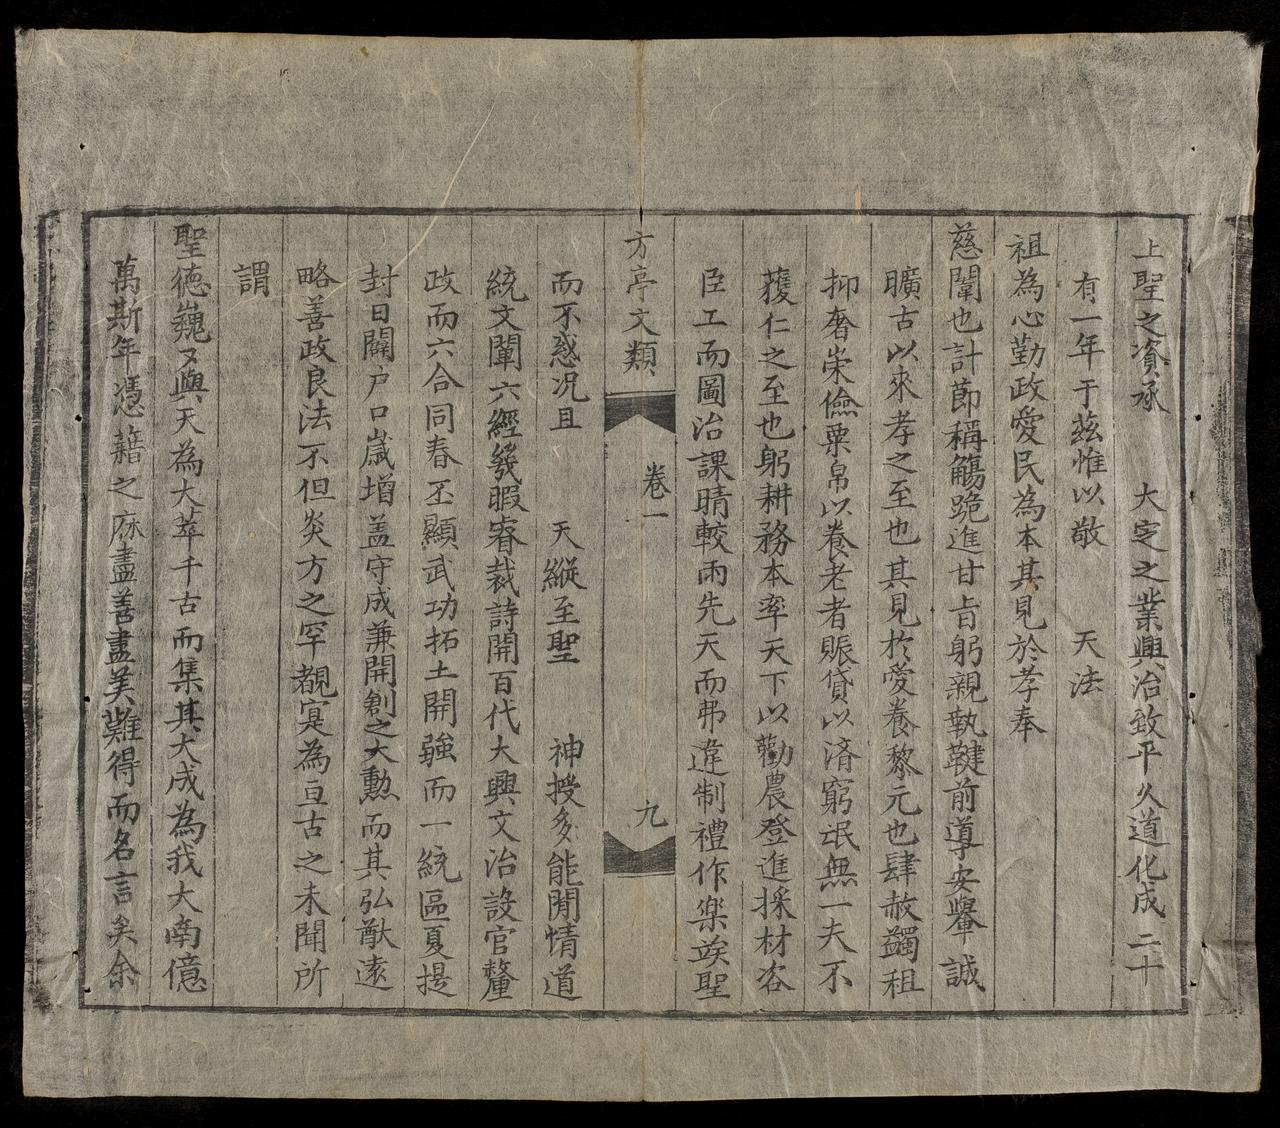 上聖之資承　大定之業興治致平久道化成二十
有一年于茲惟以敬　天法
祖為心勤政愛民為本其見於孝奉
慈闈也計節稱觴跪進甘旨躬親執鞬前導安轝誠
曠古以來孝之至也其見於愛養黎元也肆赦蠲租
抑奢崇儉粟帛以養老者賑貸以済窮氓無一夫不
蒦仁之至也躬耕務本率天下以勸農登進採材咨
臣工而圖治課晴較雨先天而弗違制禮作樂竢聖
方亭文類　卷一　九
而不惑况且　天縱至聖　神授多能閒情道
統文闡六經幾暇睿裁詩開百代大興文治設官釐
政而六合同春丕顯武功拓土開強而一統區夏提
封日闢户口歲增盖守成兼開創之大勲而其弘猷遠
略善政良法不但炎方之罕覩寔為亘古之未聞所
謂
聖德巍巍又與天為大萃千古而集其大成為我大南億
萬斯年憑藉之庥盡善盡美難得而名言矣余